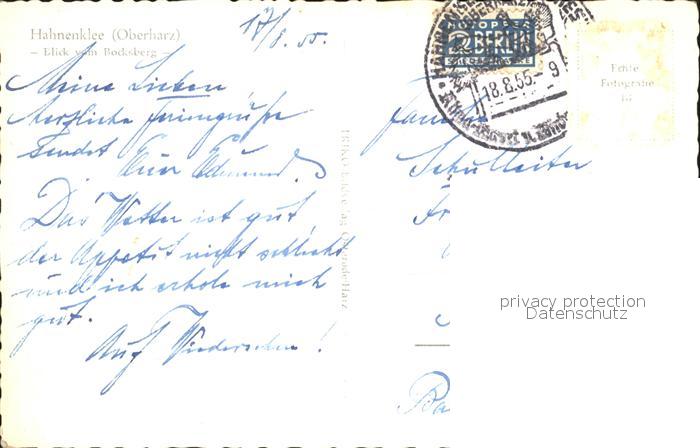 Hahnenklee (Oberharz)
– Blick vom Bocksberg –
17/8. 55.
Meine Lieben
herzliche Feriengrüße
sendet Euer Edmund.
Das Wetter ist gut,
der Appetit nicht schlecht
und ich erhole mich
gut.
Auf Wiedersehen!
NOTOPFER
2 BERLIN
STEUERMARKE
18.8.55-9
Echte
Fotografie
Familie
Schulleiter
Fr
Ba
privacy protection
Datenschutz